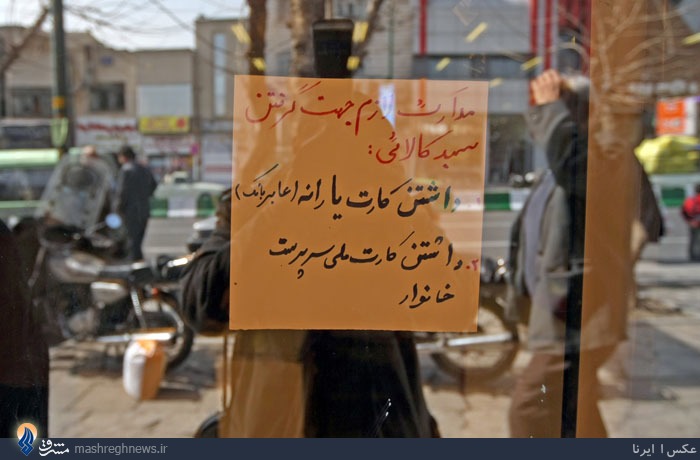 مدارک لازم جهت گرفتن
سبد کالائی:
۱. داشتن کارت یارانه (عابر بانک)
۲. داشتن کارت ملی سرپرست
خانوار
مشرق
mashreghnews.ir
عکس | ایرنا